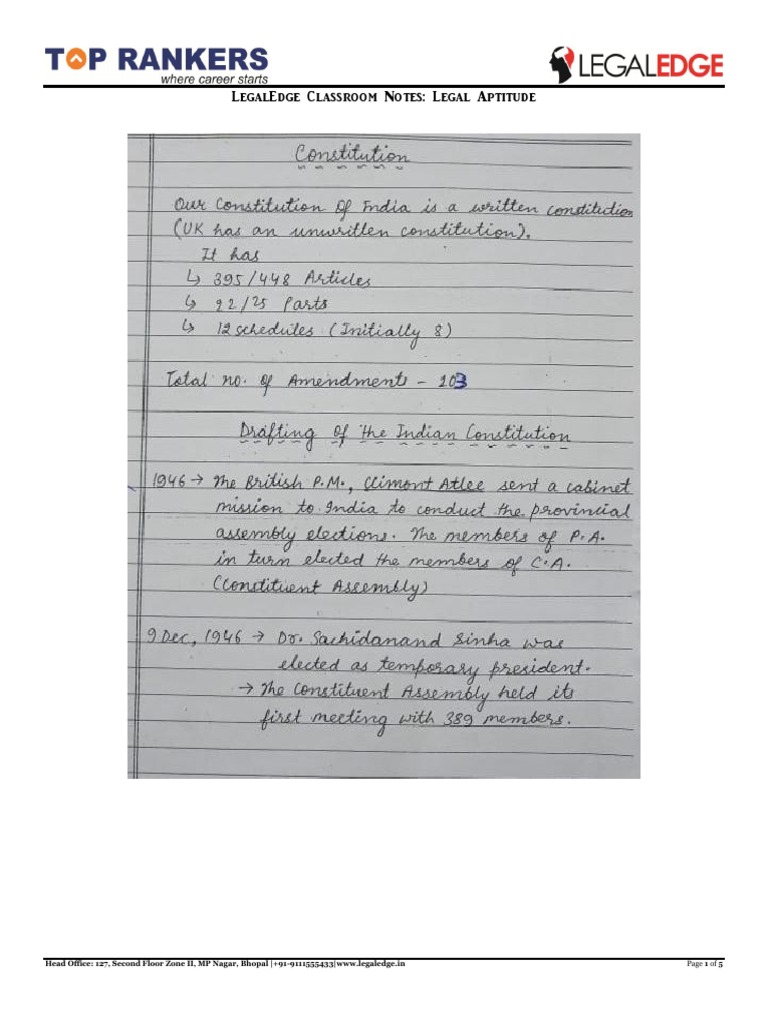 TOP RANKERS
where career starts
LEGALEDGE
LegalEdge Classroom Notes: Legal Aptitude
Constitution
Our Constitution of India is a written constitution
(UK has an unwritten constitution).
It has
↳ 395/448 Articles
↳ 22/25 Parts
↳ 12 schedules (Initially 8)
Total no. of Amendments - 103
Drafting of the Indian Constitution
1946 → The British P.M., Climont Atlee sent a cabinet
mission to India to conduct the provincial
assembly elections. The members of P.A.
in turn elected the members of C.A.
(Constituent Assembly)
9 Dec, 1946 → Dr. Sachidanand Sinha was
elected as temporary president.
→ The Constituent Assembly held its
first meeting with 389 members.
Head Office: 127, Second Floor Zone II, MP Nagar, Bhopal |+91-9111555433|www.legaledge.in
Page 1 of 5